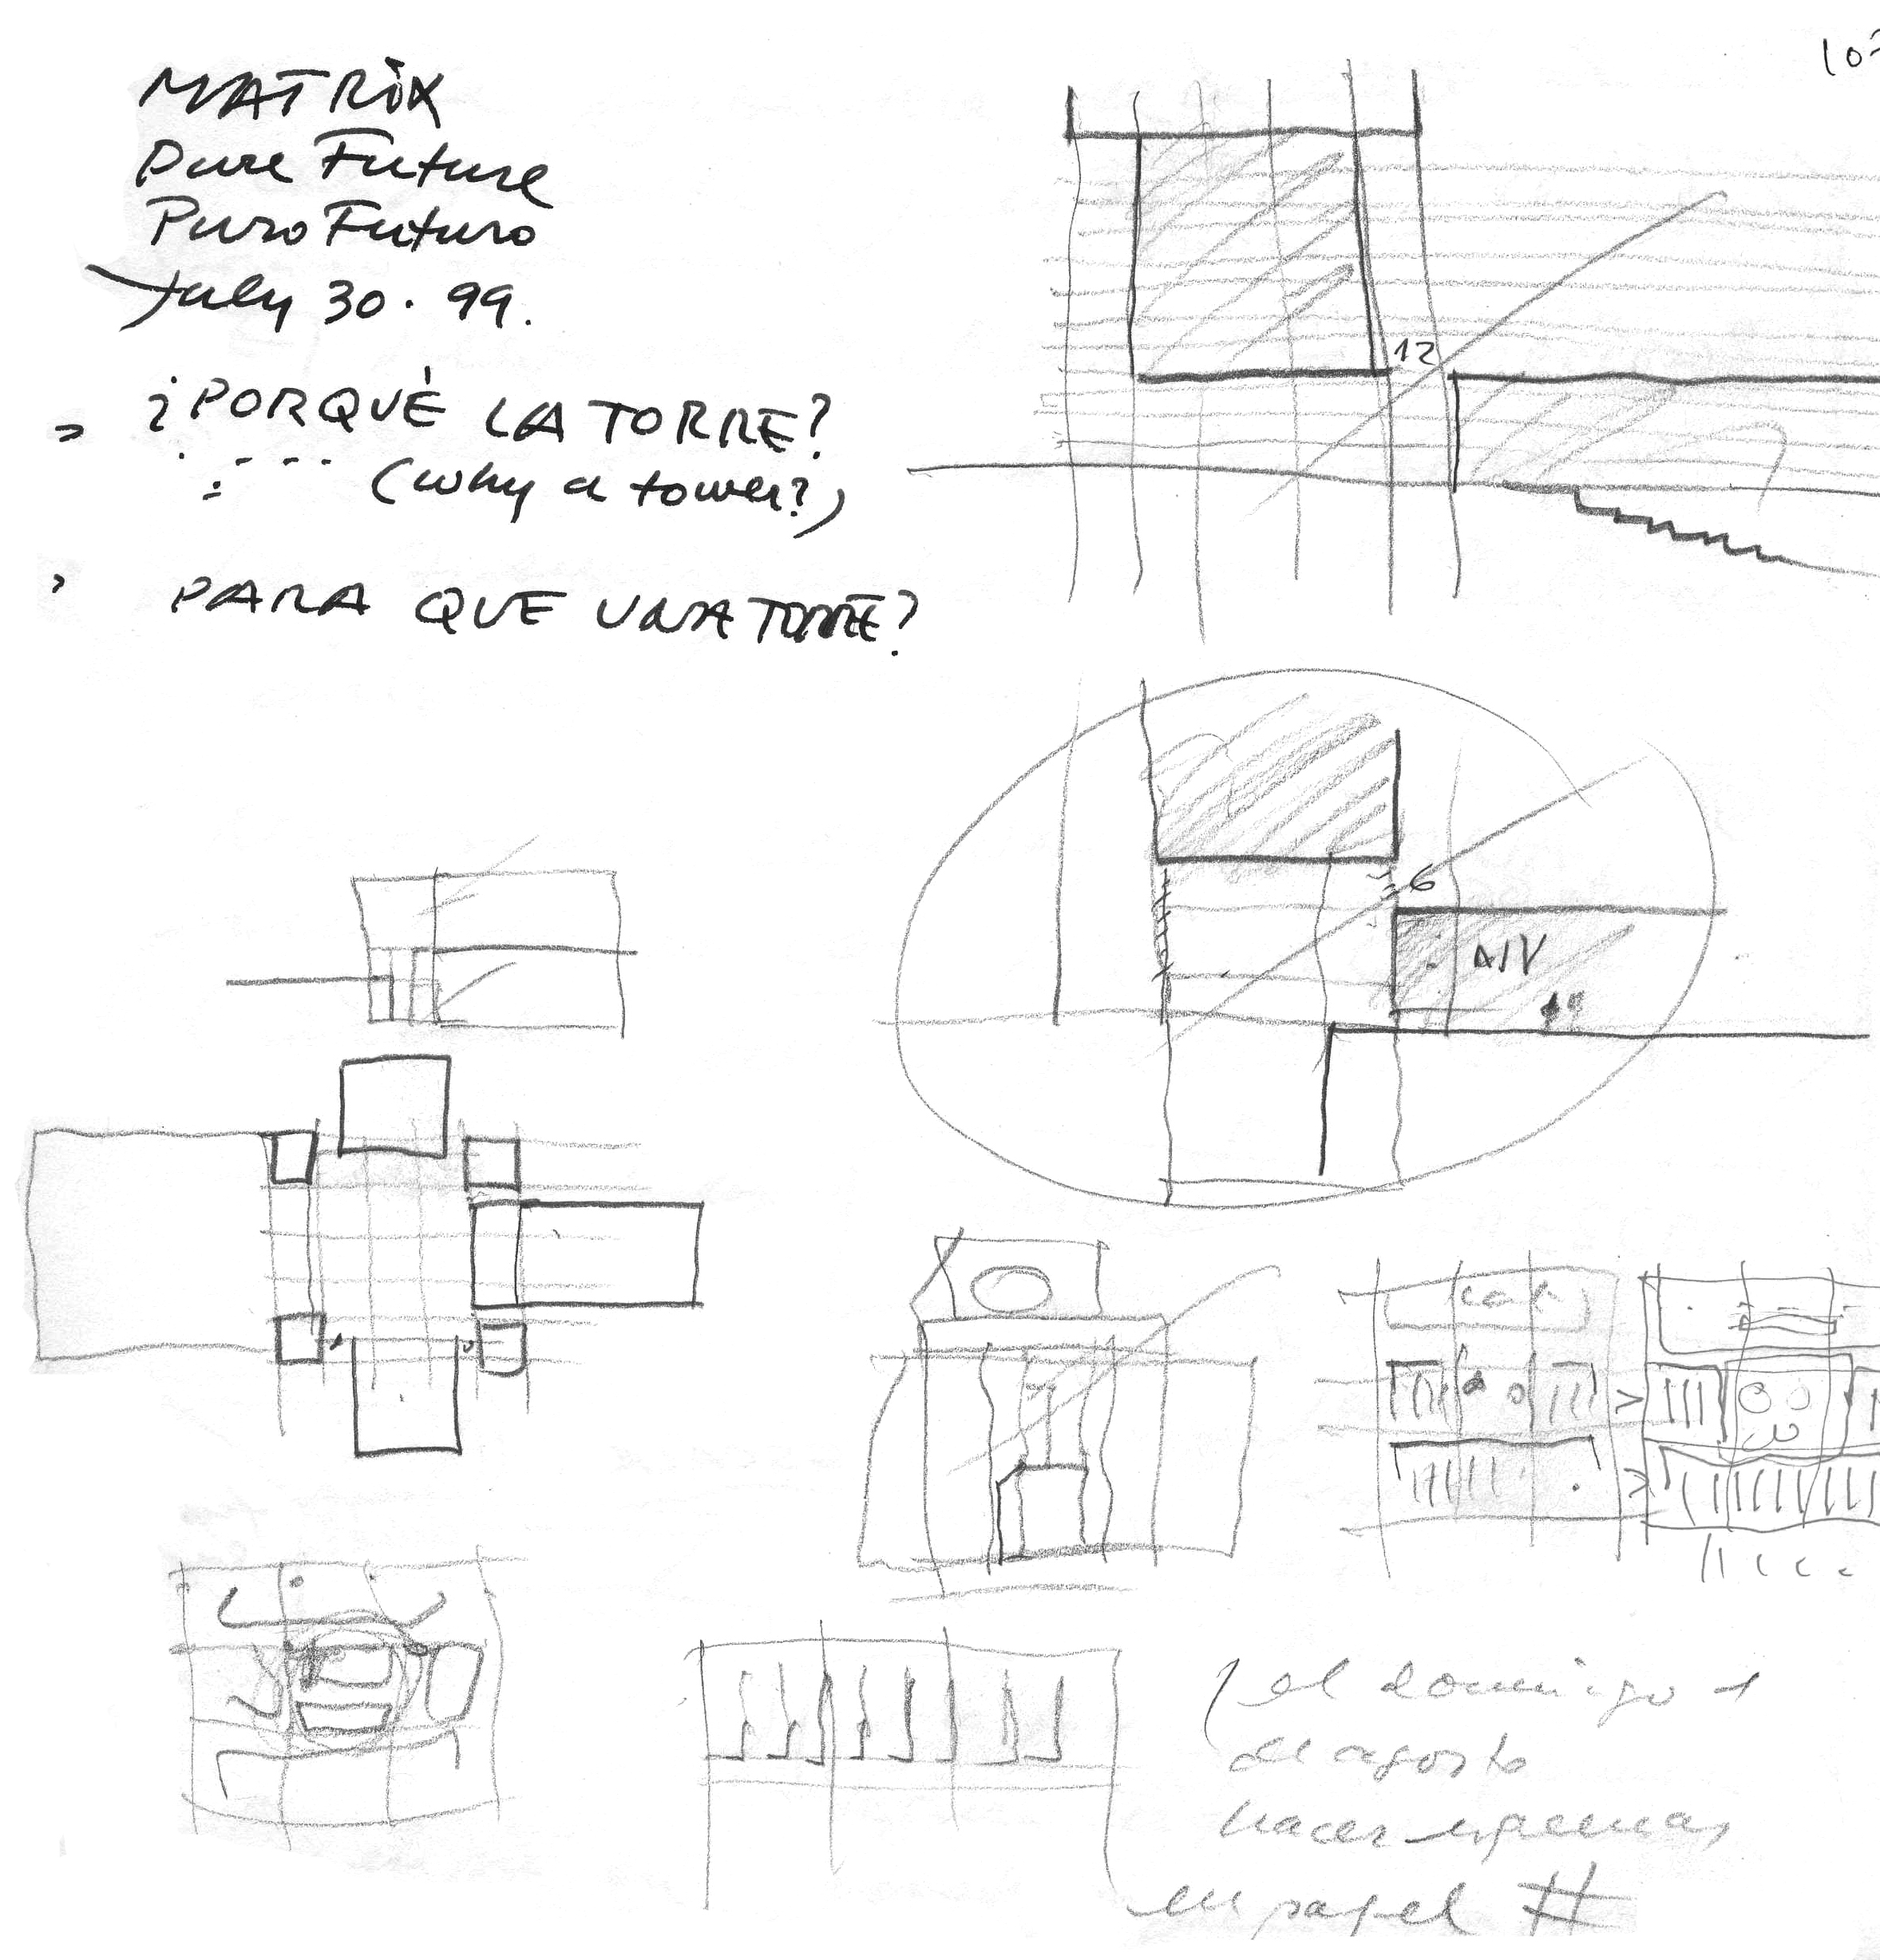 MATRIX
Pure Future
Puro Futuro
July 30. 99.
¿PORQUÉ LA TORRE?
(why a tower?)
PARA QUE UNA TORRE?
12
6
el domingo 1
de agosto
hacer esquemas
en papel #